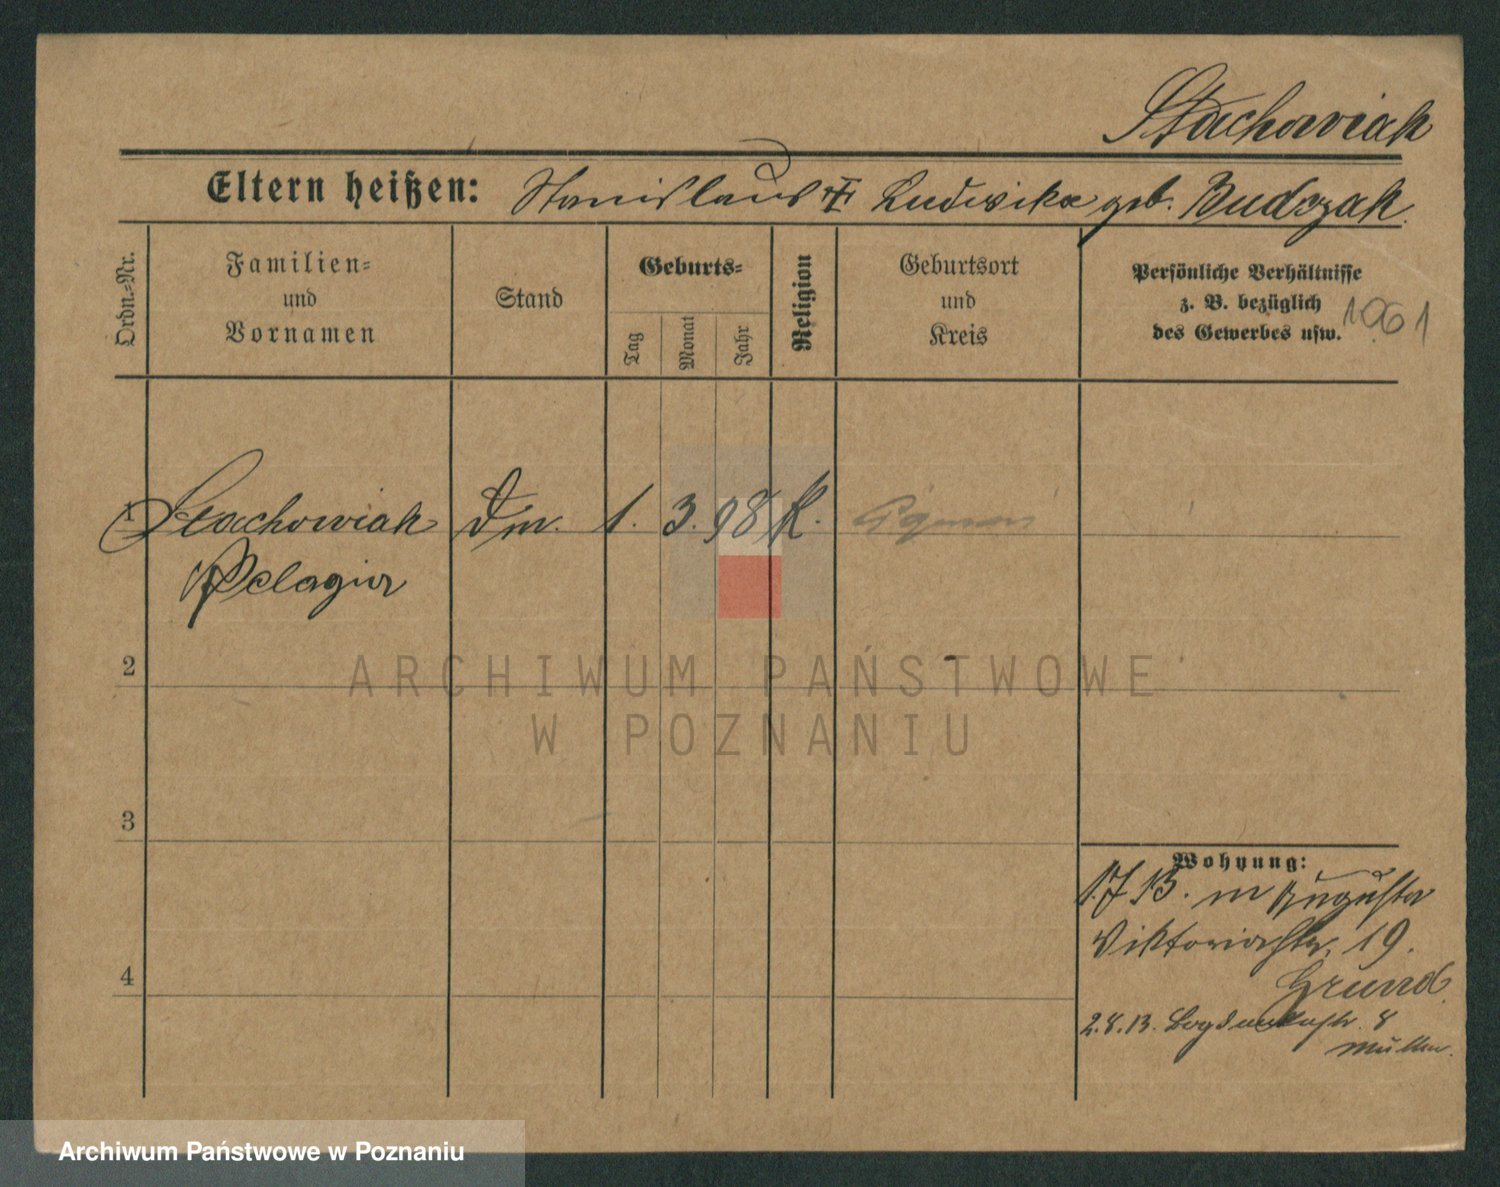 Stachowiak
Eltern heißen: Stanislaus Ludwika geb. Budczak
Ordn.=Nr.
Familien=
und
Vornamen
Stand
Geburts=
Tag
Monat
Jahr
Religion
Geburtsort
und
Kreis
Persönliche Verhältnisse
z. B. bezüglich
des Gewerbes usw.
1061
1 Stachowiak Dm. 1. 3. 98 K.
Pelagia
2
3
4
Wohnung:
1.7 13. Augusta
Viktoriastr. 19.
Grund
2.8.13. Bogdankastr. 8
Müller.
ARCHIWUM PAŃSTWOWE
W POZNANIU
Archiwum Państwowe w Poznaniu